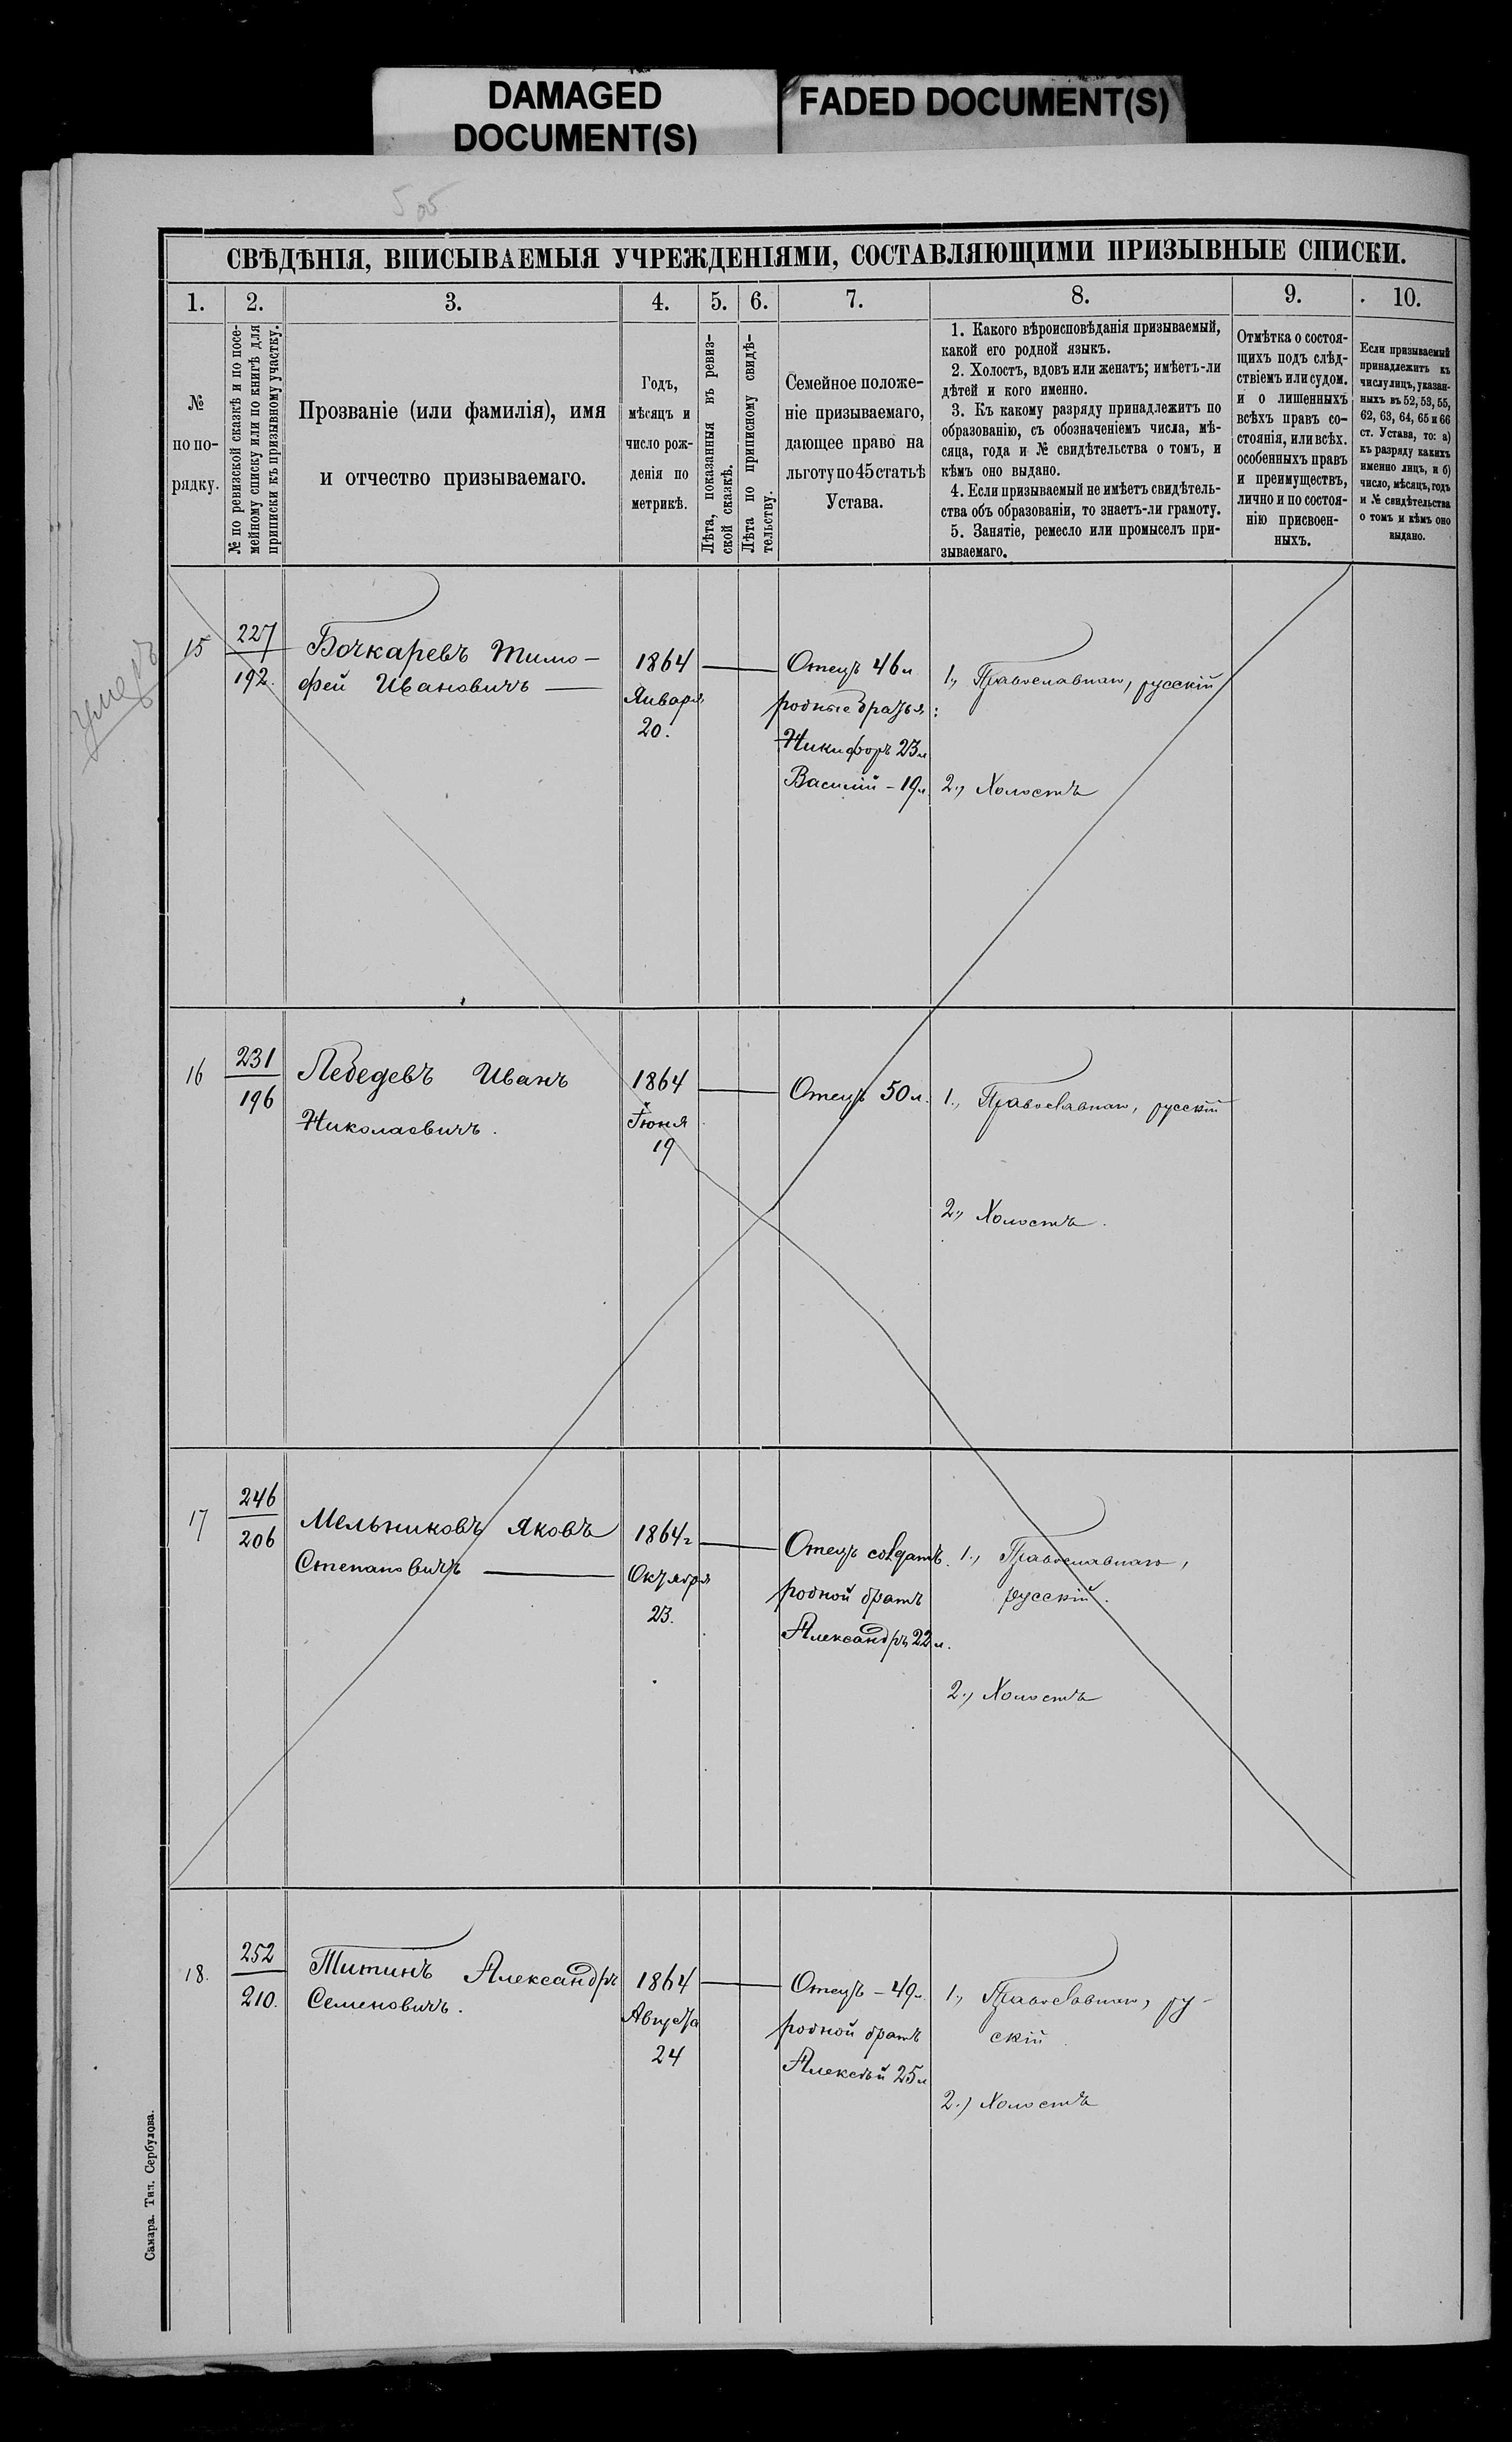 DAMAGED
DOCUMENT(S)
FADED DOCUMENT(S)
5 об
СВѢДѢНІЯ, ВПИСЫВАЕМЫЯ УЧРЕЖДЕНІЯМИ, СОСТАВЛЯЮЩИМИ ПРИЗЫВНЫЕ СПИСКИ.
1. 2. 3. 4. 5. 6. 7. 8. 9. 10.
№
по по-
рядку.
№ по ревизской сказкѣ и по посе-
мейному списку или по книгѣ для
приписки къ призывному участку.
Прозваніе (или фамилія), имя
и отчество призываемаго.
Годъ,
мѣсяцъ и
число рож-
денія по
метрикѣ.
Лѣта, показанныя въ ревиз-
ской сказкѣ.
Лѣта по приписному свидѣ-
тельству.
Семейное положе-
ніе призываемаго,
дающее право на
льготу по 45 статьѣ
Устава.
1. Какого вѣроисповѣданія призываемый,
какой его родной языкъ.
2. Холостъ, вдовъ или женатъ; имѣетъ-ли
дѣтей и кого именно.
3. Къ какому разряду принадлежитъ по
образованію, съ обозначеніемъ числа, мѣ-
сяца, года и № свидѣтельства о томъ, и
кѣмъ оно выдано.
4. Если призываемый не имѣетъ свидѣтель-
ства объ образованіи, то знаетъ-ли грамоту.
5. Занятіе, ремесло или промыселъ при-
зываемаго.
Отмѣтка о состоя-
щихъ подъ слѣд-
ствіемъ или судом.
и о лишенныхъ
всѣхъ правъ со-
стоянія, или всѣх.
особенныхъ правъ
и преимуществъ,
лично и по состоя-
нію присвоен-
ныхъ.
Если призываемый
принадлежитъ къ
числу лицъ, указан-
ныхъ въ 52, 53, 55,
62, 63, 64, 65 и 66
ст. Устава, то: а)
къ разряду какихъ
именно лицъ, и б)
число, мѣсяцъ, годъ
и № свидѣтельства
о томъ и кѣмъ оно
выдано.
умеръ
15
227
192.
Бочкаревъ Тимо-
фей Ивановичъ
1864
Января
20.
Отецъ 46 л
родные братья:
Никифоръ 23 л
Василій - 19 л
1., Православнаго, русскій
2., Холостъ
16
231
196
Лебедевъ Иванъ
Николаевичъ.
1864
Іюня
19
Отецъ 50 л.
1., Православнаго, русскій
2., Холостъ.
17
246
206
Мельниковъ Яковъ
Степановичъ
1864 г
Октября
23.
Отецъ солдатъ.
родной братъ
Александръ 22 л.
1., Православнаго,
русскій.
2., Холостъ
18.
252
210.
Титинъ Александръ
Семеновичъ.
1864
Августа
24
Отецъ - 49 л.
родной братъ
Алексѣй 25 л
1., Православнаго, ру-
скій
2.) Холостъ
Самара. Тип. Сербулова.